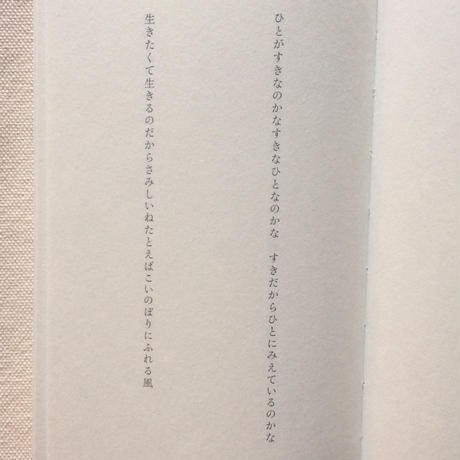 ひとがすきなのかなすきなひとなのかな　すきだからひとにみえているのかな
生きたくて生きるのだからさみしいねたとえばこいのぼりにふれる風